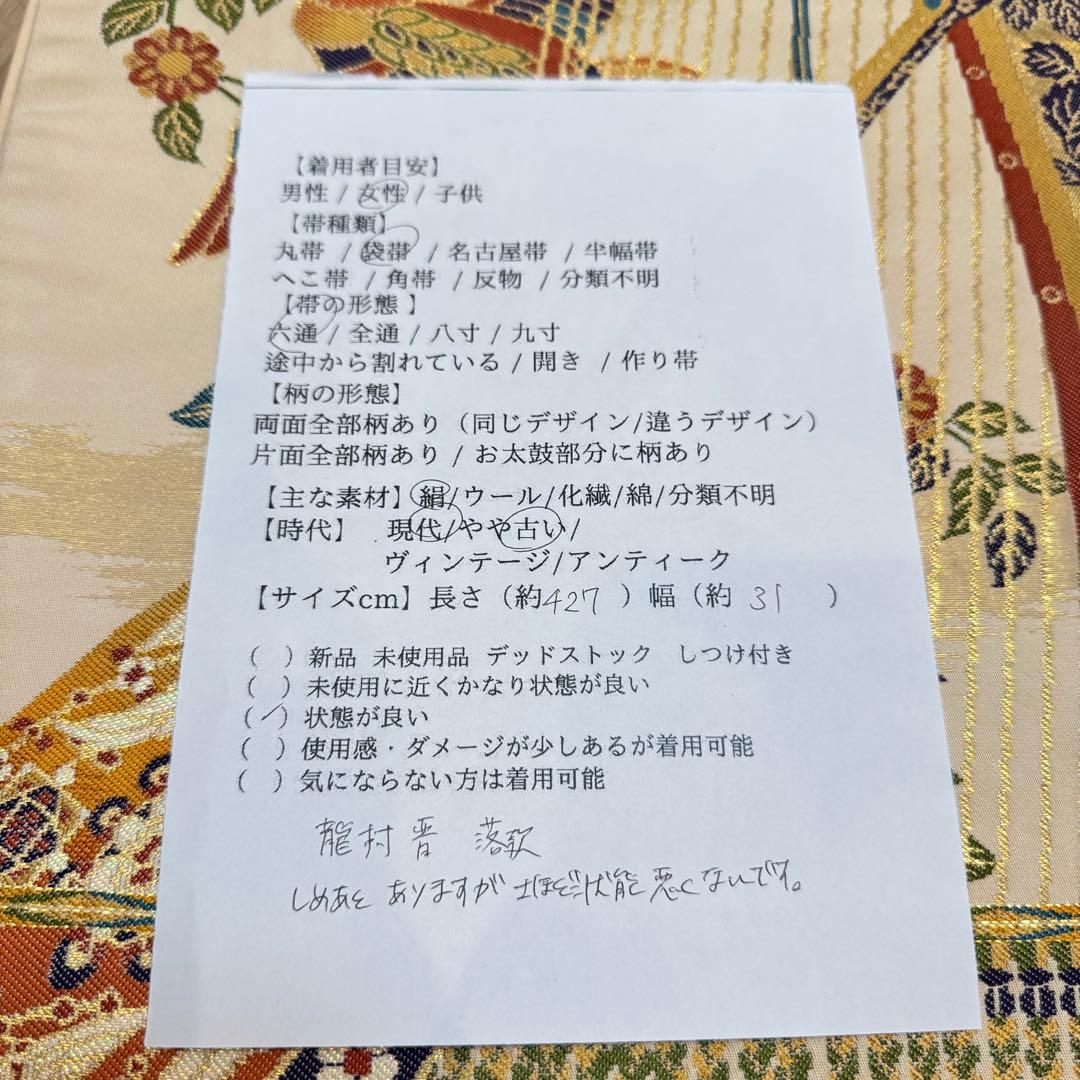 【着用者目安】
男性 / 女性 / 子供
【帯種類】
丸帯 / 袋帯 / 名古屋帯 / 半幅帯
へこ帯 / 角帯 / 反物 / 分類不明
【帯の形態 】
六通 / 全通 / 八寸 / 九寸
途中から割れている / 開き / 作り帯
【柄の形態】
両面全部柄あり（同じデザイン/違うデザイン）
片面全部柄あり / お太鼓部分に柄あり
【主な素材】絹/ウール/化繊/綿/分類不明
【時代】 現代/やや古い/
ヴィンテージ/アンティーク
【サイズcm】長さ（約427 ）幅（約 31 ）
( ) 新品 未使用品 デッドストック しつけ付き
( ) 未使用に近くかなり状態が良い
(✓) 状態が良い
( ) 使用感・ダメージが少しあるが着用可能
( ) 気にならない方は着用可能
龍村晋 落款
しめあと ありますが さほど状態悪くないです。